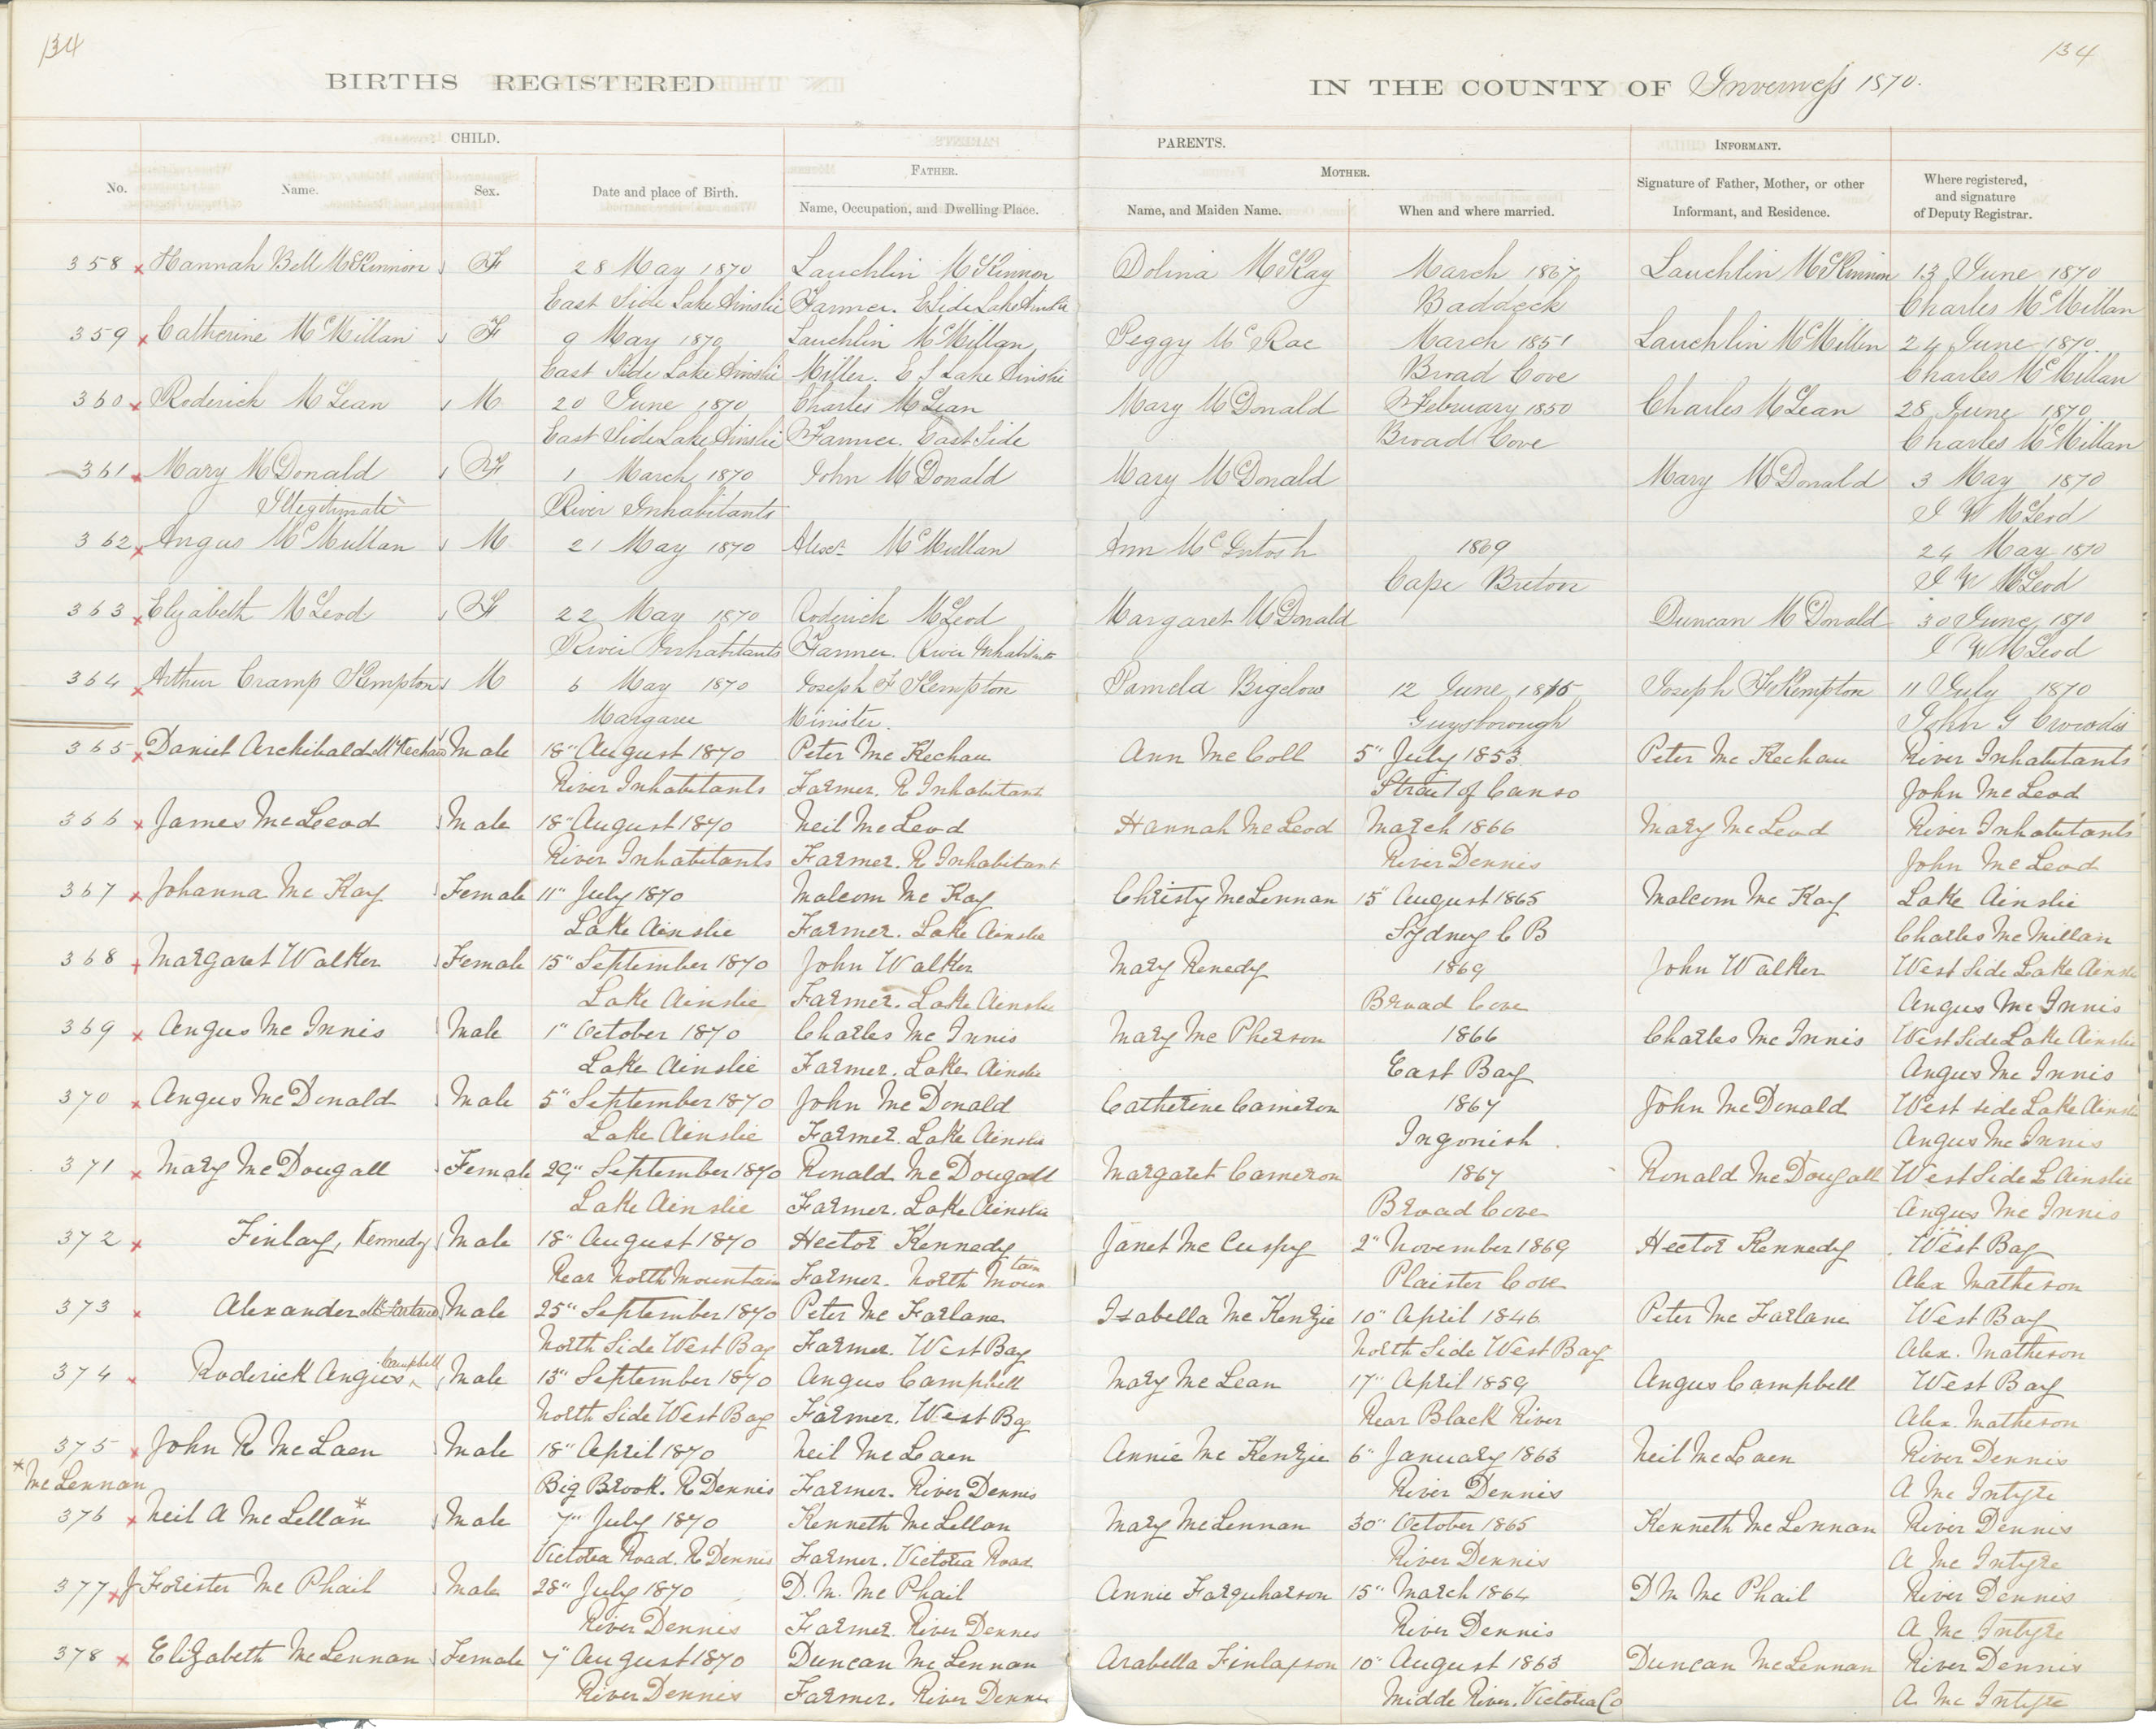 134
134
BIRTHS REGISTERED
IN THE COUNTY OF Inverness 1870.
CHILD.
PARENTS.
INFORMANT.
No.
Name.
Sex.
Date and place of Birth.
FATHER.
Name, Occupation, and Dwelling Place.
MOTHER.
Name, and Maiden Name.
When and where married.
Signature of Father, Mother, or other
Informant, and Residence.
Where registered,
and signature
of Deputy Registrar.
358 x Hannah Bell McKinnon F 28 May 1870 Lauchlin McKinnon Dolina McKay March 1867 Lauchlin McKinnon 13 June 1870
East Side Lake Ainslie Farmer. E Side Lake Ainslie Baddeck Charles McMillan
359 x Catherine McMillan F 9 May 1870 Lauchlin McMillan Peggy McRae March 1851 Lauchlin McMillen 24 June 1870
East Side Lake Ainslie Miller. E S Lake Ainslie Broad Cove Charles McMillan
360 x Roderick McLean M 20 June 1870 Charles McLean Mary McDonald February 1850 Charles McLean 28 June 1870
East Side Lake Ainslie Farmer. East Side Broad Cove Charles McMillan
361 x Mary McDonald F 1 March 1870 John McDonald Mary McDonald Mary McDonald 3 May 1870
Illegitimate River Inhabitants I W McLeod
362 x Angus McMullan M 21 May 1870 Alexr McMullan Ann McIntosh 1869 24 May 1870
Cape Breton I W McLeod
363 x Elizabeth McLeod F 22 May 1870 Roderick McLeod Margaret McDonald Duncan McDonald 30 June 1870
River Inhabitants Farmer. River Inhabitants I W McLeod
364 x Arthur Cramp Kempton M 6 May 1870 Joseph F Kempton Pamela Bigelow 12 June Joseph F Kempton 11 July 1870
Margaree Minister. Guysborough John G
365 x Daniel Archibald McKechan Male 18" August 1870 Peter McKechan Ann McColl 5" July 1853. Peter McKechan River Inhabitants
River Inhabitants Farmer. R Inhabitant Strait of Canso John McLeod
366 x James McLeod Male 18" August 1870 Neil McLeod Hannah McLeod March 1866 Mary McLeod River Inhabitants
River Inhabitants Farmer. R Inhabitant River Dennis John McLeod
367 x Johanna McKay Female 11" July 1870 Malcom McKay Christy McLennan 15" August 1865 Malcom McKay Lake Ainslie
Lake Ainslie Farmer. Lake Ainslie Sydney C B Charles McMillan
368 x Margaret Walker Female 15" September 1870 John Walker Mary Kenedy 1869 John Walker West Side Lake Ainslie
Lake Ainslie Farmer. Lake Ainslie Broad Cove Angus McInnis
369 x Angus McInnis Male 1" October 1870 Charles McInnis Mary McPherson 1866 Charles McInnis West Side Lake Ainslie
Lake Ainslie Farmer. Lake Ainslie East Bay Angus McInnis
370 x Angus McDonald Male 5" September 1870 John McDonald Catherine Cameron 1867 John McDonald West side Lake Ainslie
Lake Ainslie Farmer. Lake Ainslie Ingonish. Angus McInnis
371 x Mary McDougall Female 29" September 1870 Ronald McDougall Margaret Cameron 1867 Ronald McDougall West Side L Ainslie
Lake Ainslie Farmer. Lake Ainslie Broad Cove Angus McInnis
372 x Finlay, Kennedy Male 18" August 1870 Hector Kennedy Janet McCuspy 2" November 1869 Hector Kennedy West Bay
Rear North Mountain Farmer. North Mountain Plaister Cove Alex Matheson
373 x Alexander McFarland Male 25" September 1870 Peter McFarlane Isabella McKenzie 10" April 1846 Peter McFarlane West Bay
North Side West Bay Farmer. West Bay North Side West Bay Alex. Matheson
374 x Roderick Angus Campbell Male 13" September 1870 Angus Campbell Mary McLean 17" April 1859 Angus Campbell West Bay
North Side West Bay Farmer. West Bay Rear Black River Alex. Matheson
375 x John R McLaen Male 18" April 1870 Neil McLaen Annie McKenzie 6" January 1863 Neil McLaen River Dennis
* McLennan Big Brook. R Dennis Farmer. River Dennis River Dennis A McIntyre
376 x Neil A McLellan* Male 7" July 1870 Kenneth McLellan Mary McLennan 30" October 1865 Kenneth McLennan River Dennis
Victoria Road. R Dennis Farmer. Victoria Road River Dennis A McIntyre
377 x J Forister McPhail Male 28" July 1870 D. M. McPhail Annie Farquharson 15" March 1864 D M McPhail River Dennis
River Dennis Farmer. River Dennis River Dennis A McIntyre
378 x Elizabeth McLennan Female 7" August 1870 Duncan McLennan Arabella Finlayson 10" August 1863 Duncan McLennan River Dennis
River Dennis Farmer. River Dennis Midde River. Victoria Co A. McIntyre